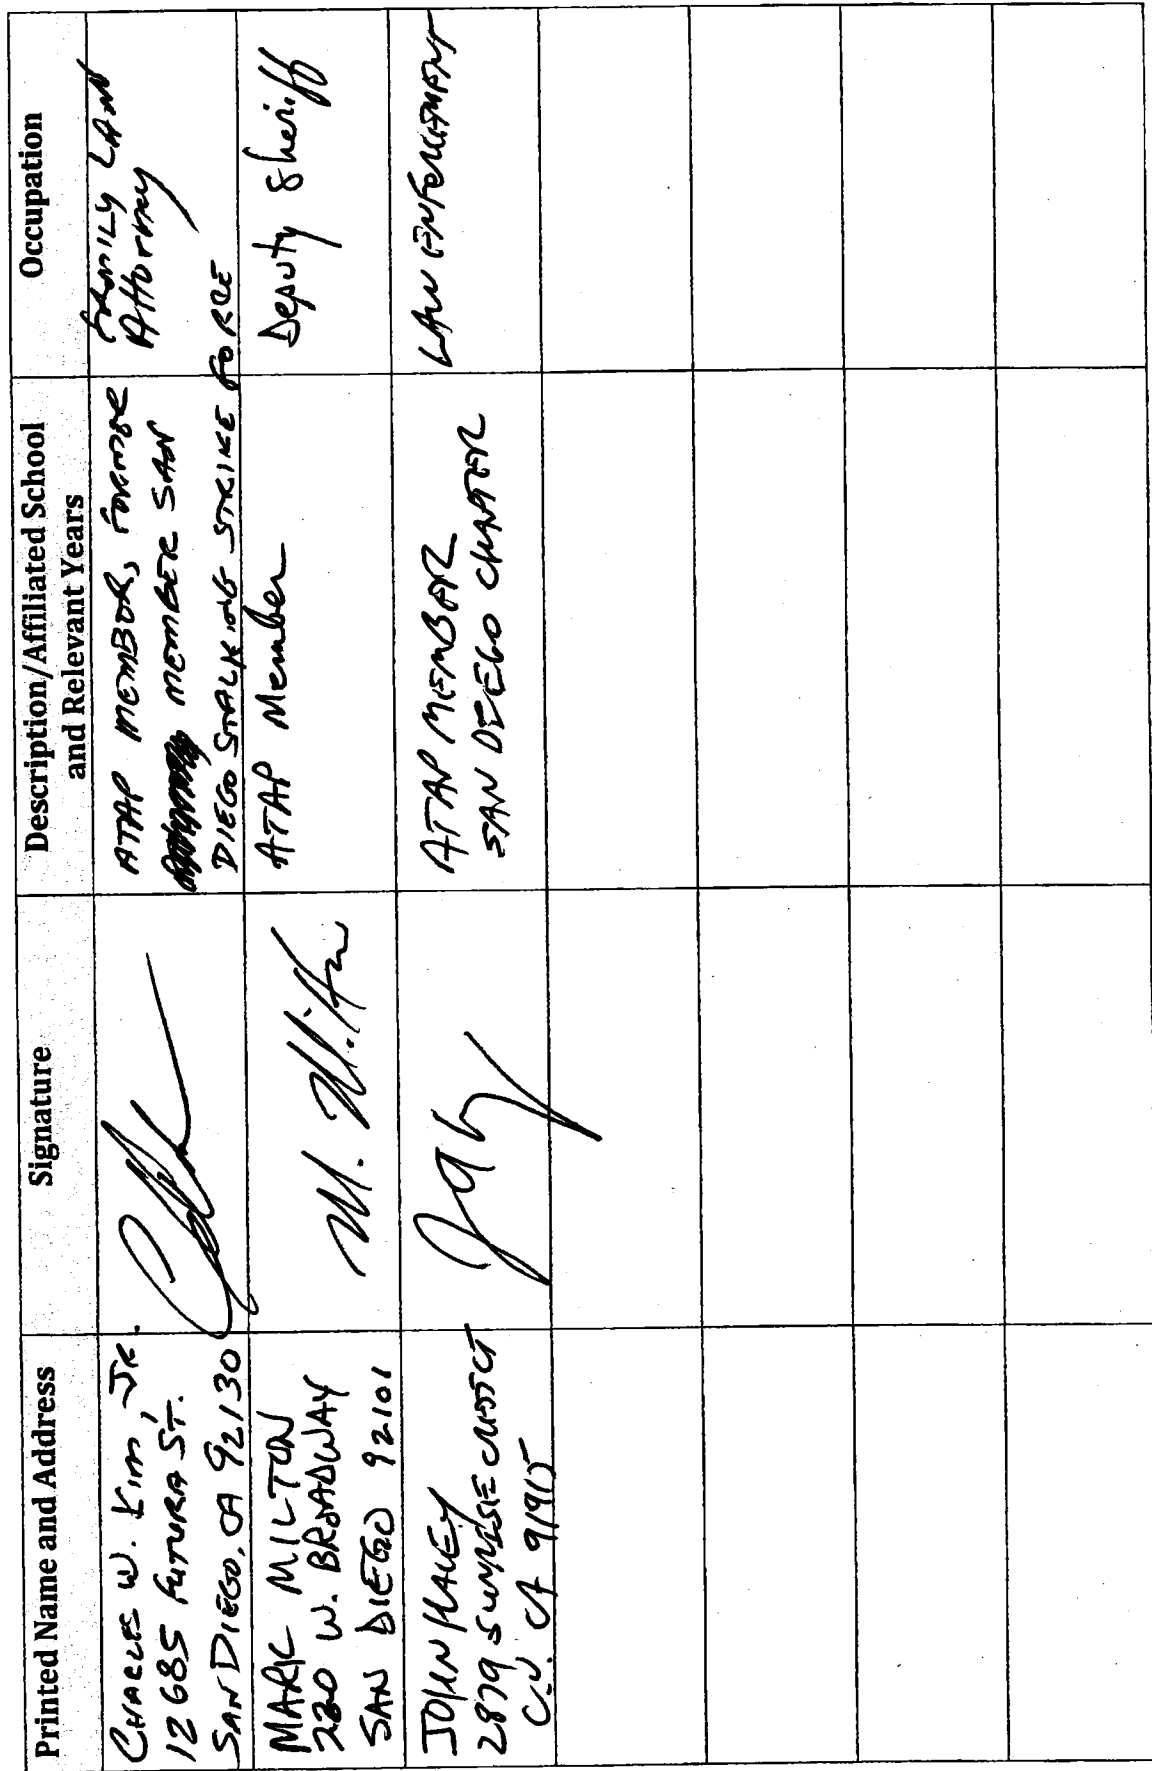 Printed Name and Address
Signature
Description/Affiliated School
and Relevant Years
Occupation
CHARLES W. KIM, JR.
12685 FUTURA ST.
SAN DIEGO, CA 92130
ATAP MEMBER, FORMER
MEMBER SAN
DIEGO STALKING STRIKE FORCE
FAMILY LAW
Attorney
MARK MILTON
220 W. BROADWAY
SAN DIEGO 92101
M. Milton
ATAP Member
Deputy Sheriff
JOHN HALEY
2879 SUNRISE CREST CT
C.V. CA 91915
ATAP MEMBER
SAN DIEGO CHAPTER
LAW ENFORCEMENT